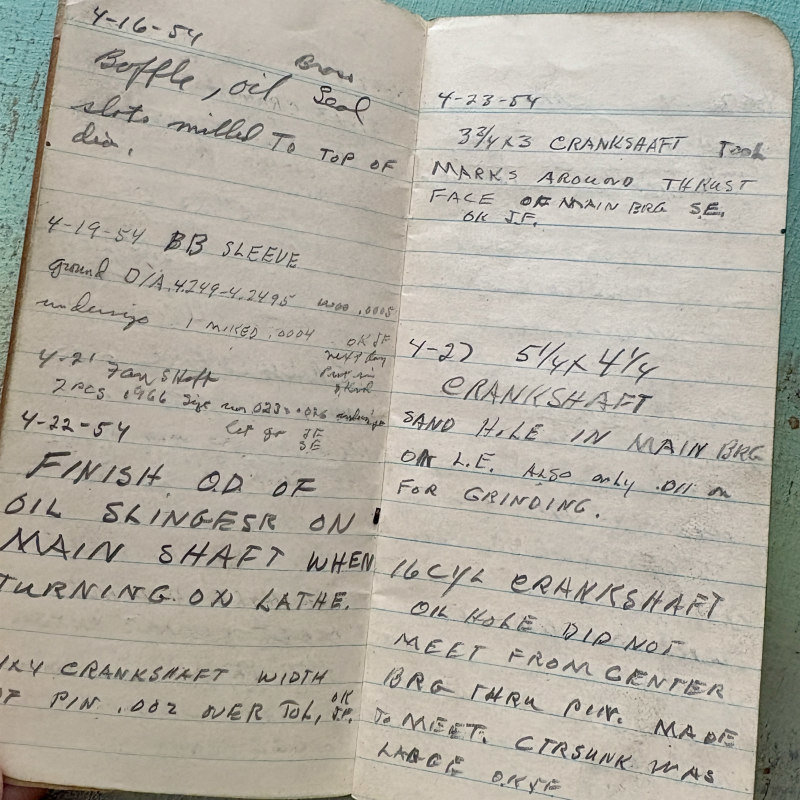 4-16-54
Baffle, oil Seal
slots milled To TOP OF
dia.
4-19-54 BB SLEEVE
ground DIA. 4.249-4.2495 was .0005
undersize I MIKED .0004 OK JF
next time
4-21 Fan Shaft
2 PCS .966 Size run .023 - .026
let go JF
SE
4-22-54
FINISH O.D. OF
OIL SLINGESR ON
MAIN SHAFT WHEN
TURNING ON LATHE.
X4 CRANKSHAFT WIDTH
OF PIN .002 OVER TOL, OK
J.F.
4-23-54
3 3/4 X 3 CRANKSHAFT TOOL
MARKS AROUND THRUST
FACE OF MAIN BRG SE.
OK J.F.
4-27 5 1/4 X 4 1/4
CRANKSHAFT
SAND HOLE IN MAIN BRG
ON L.E. Also only .011 on
FOR GRINDING.
16 CYL CRANKSHAFT
OIL HOLE DID NOT
MEET FROM CENTER
BRG THRU PIN. MADE
TO MEET. CTRSUNK WAS
LARGE OK JF